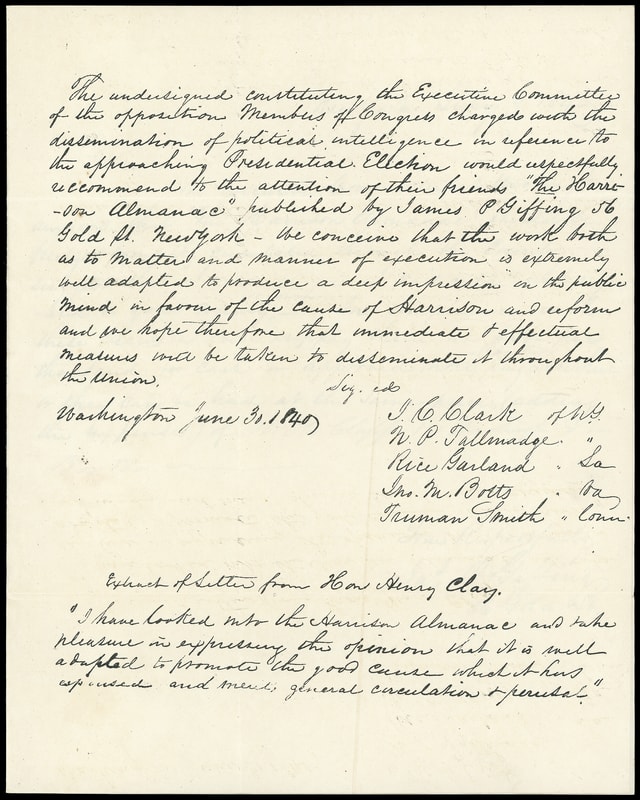 The undersigned constituting the Executive Committee
of the opposition Members of Congress charged with the
dissemination of political intelligence in reference to
the approaching Presidential Election would respectfully
reccommend to the attention of their friends "The Harri-
-son Almanac" published by James P Giffing 56
Gold St. New York - We conceive that the work both
as to matter and manner of execution is extremely
well adapted to produce a deep impression in the public
mind in favour of the cause of Harrison and reform
and we hope therefore that immediate & effectual
measures will be taken to disseminate it throughout
the Union.
Sig. ed
Washington June 30. 1840
J. C. Clark of N.Y.
N. P. Tallmadge "
Rice Garland " La
Jno. M. Botts " Va
Truman Smith " Conn.
Extract of Letter from Hon Henry Clay.
"I have looked into the Harrison Almanac and take
pleasure in expressing the opinion that it is well
adapted to promote the good cause which it has
espoused and merits general circulation & perusal."